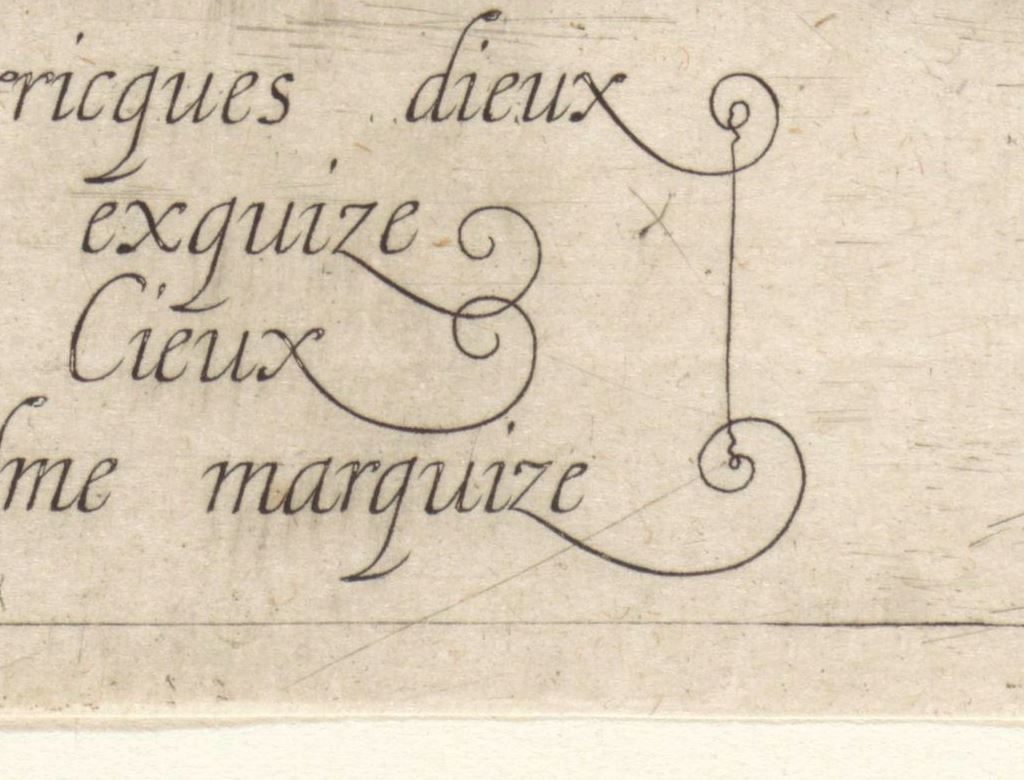 ricques dieux
exquize
Cieux
me marquize